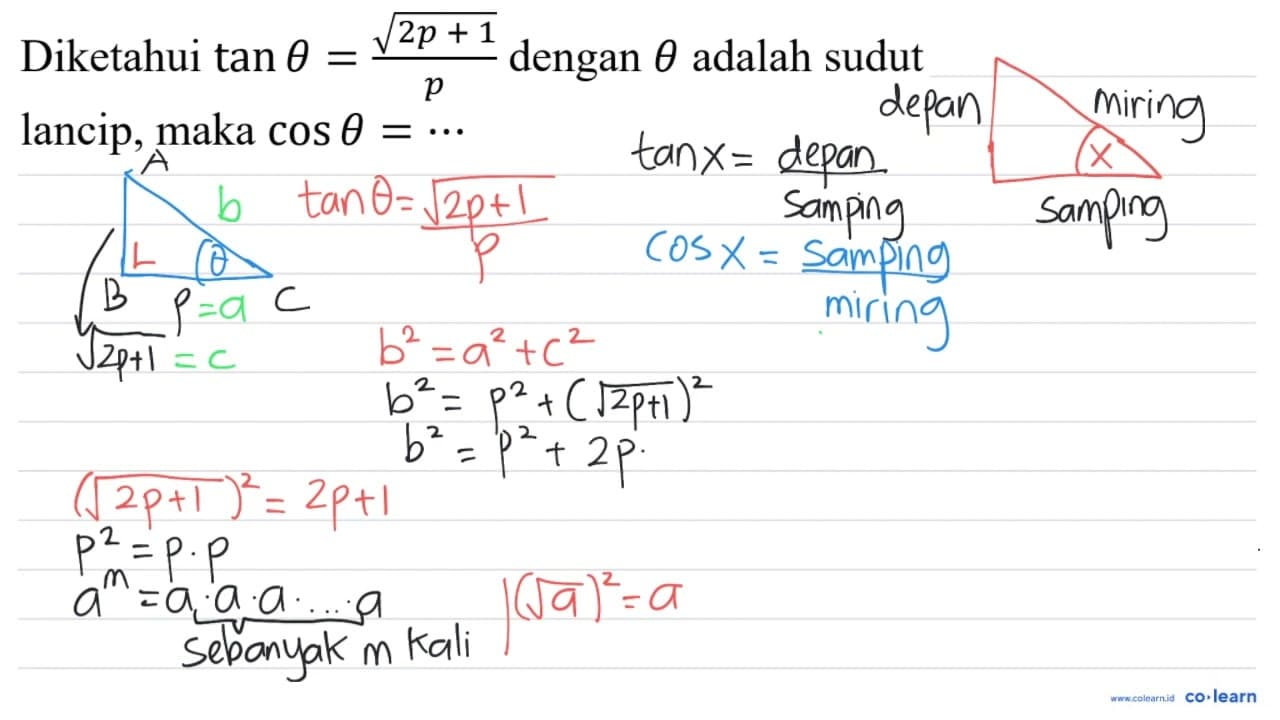 Diketahui tan θ = √(2p + 1) / p dengan θ adalah sudut
lancip, maka cos θ = ⋯
A
b
L
θ
B
p = a
C
√(2p+1) = c
tan θ = √(2p+1) / p
tan x = depan / samping
cos x = samping / miring
depan
miring
x
samping
b² = a² + c²
b² = p² + (√(2p+1))²
b² = p² + 2p
(√(2p+1))² = 2p+1
p² = p · p
aᵐ = a · a · a · ... · a
sebanyak m kali
(√a)² = a
www.colearn.id co·learn